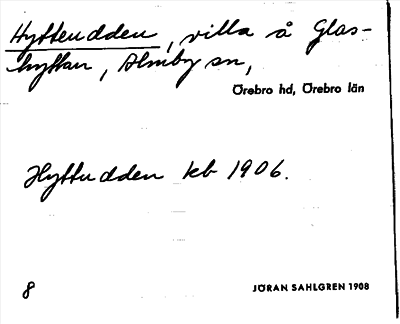 Hyttudden, villa å Glas-
hyttan, Almby sn,
Örebro hd, Örebro län
Hyttudden kb 1906.
8 JÖRAN SAHLGREN 1908